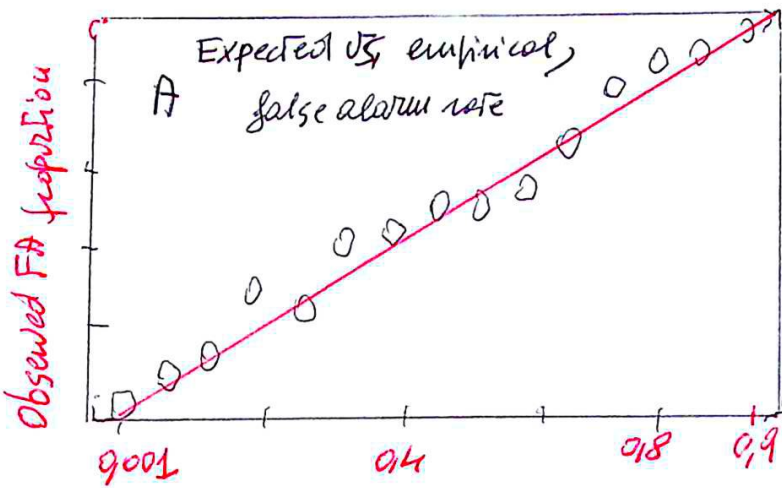 Expected vs, empirical,
A
false alarm rate
Observed FA proportion
0,001
0,4
0,8
0,9